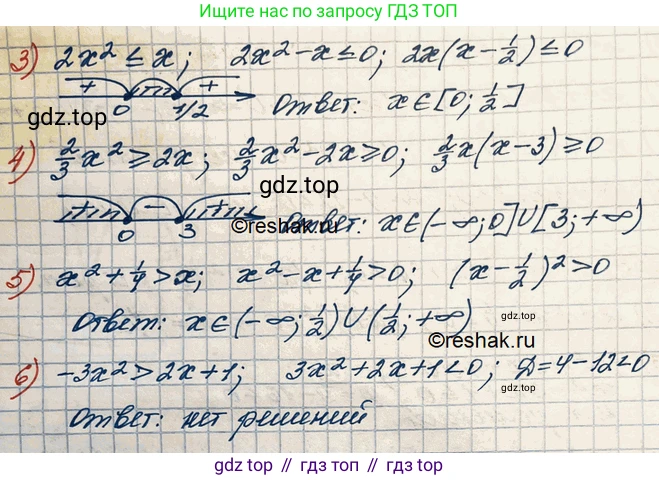 Ищите нас по запросу ГДЗ ТОП
3) 2x² ≤ x; 2x² - x ≤ 0; 2x(x - 1/2) ≤ 0
+ - +
0 1/2 Ответ: x ∈ [0; 1/2]
gdz.top
4) 2/3x² ≥ 2x; 2/3x² - 2x ≥ 0; 2/3x(x - 3) ≥ 0
gdz.top
+ - +
0 3 Ответ: x ∈ (-∞; 0] ∪ [3; +∞)
©reshak.ru
5) x² + 1/4 > x; x² - x + 1/4 > 0; (x - 1/2)² > 0
gdz.top
Ответ: x ∈ (-∞; 1/2) ∪ (1/2; +∞)
©reshak.ru
6) -3x² > 2x + 1; 3x² + 2x + 1 < 0; Д = 4 - 12 < 0
gdz.top
Ответ: нет решений
gdz top // гдз топ // gdz.top